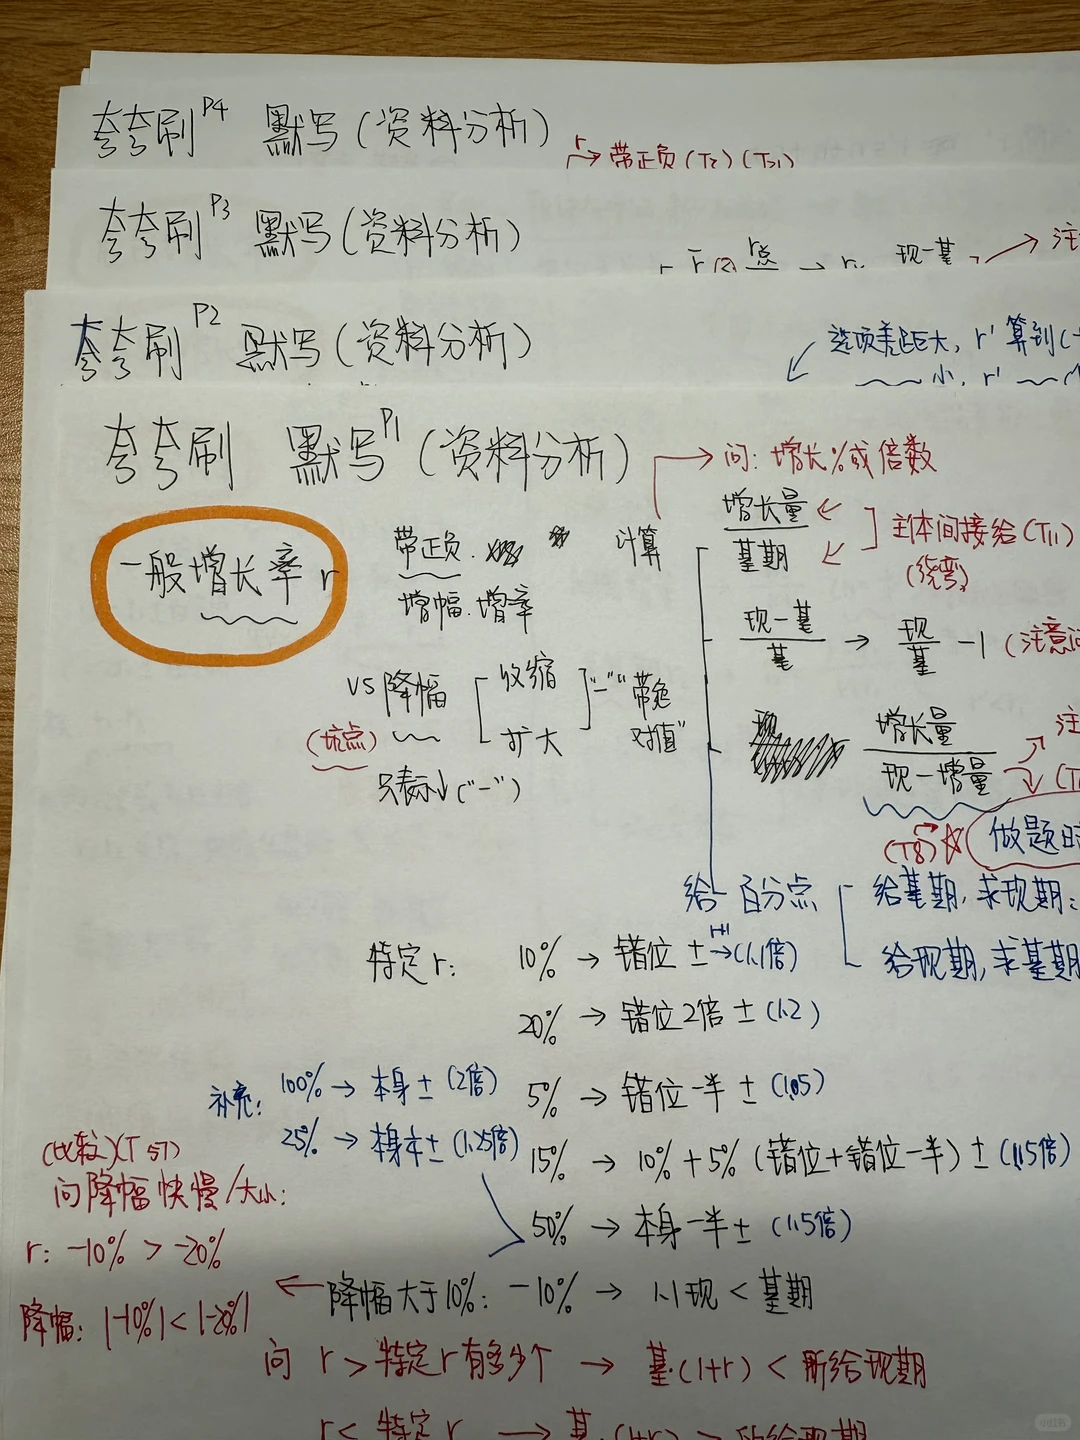 夸夸刷 P4 默写(资料分析)
r → 带正负(T2)(T31)
夸夸刷 P3 默写(资料分析)
现-基 → 注
夸夸刷 P2 默写(资料分析)
选项差距大, r' 算到(
小, r'
夸夸刷 默写 P1 (资料分析)
→ 问: 增长%或倍数
一般增长率 r
带正负. 计算
增幅. 增率
增长量/基期
主体间接给(T11)
(绕弯)
现-基/基 → 现/基 -1 (注意问
vs 降幅 收缩 扩大 "-"
(坑点)
只表示↓("-")
增长量/现-增量
注
(T8) ☆ 做题时
给 百分点 给基期, 求现期:
给现期, 求基期
特定 r: 10% → 错位 ± → (1.1倍)
20% → 错位2倍 ± (1.2)
补充: 100% → 本身 ± (2倍)
5% → 错位一半 ± (1.05)
25% → (1.25倍)
15% → 10% + 5% (错位+错位一半) ± (1.15倍)
50% → 本身一半 ± (1.5倍)
(比较)(T57)
问降幅快慢/大小:
r: -10% > -20%
降幅: |-10%| < |-20%|
← 降幅大于10%: -10% → 1.1现 < 基期
问 r > 特定 r 有多少个 → 基·(1+r) < 所给现期
r < 特定 r → 基·(1+r) > 所给现期